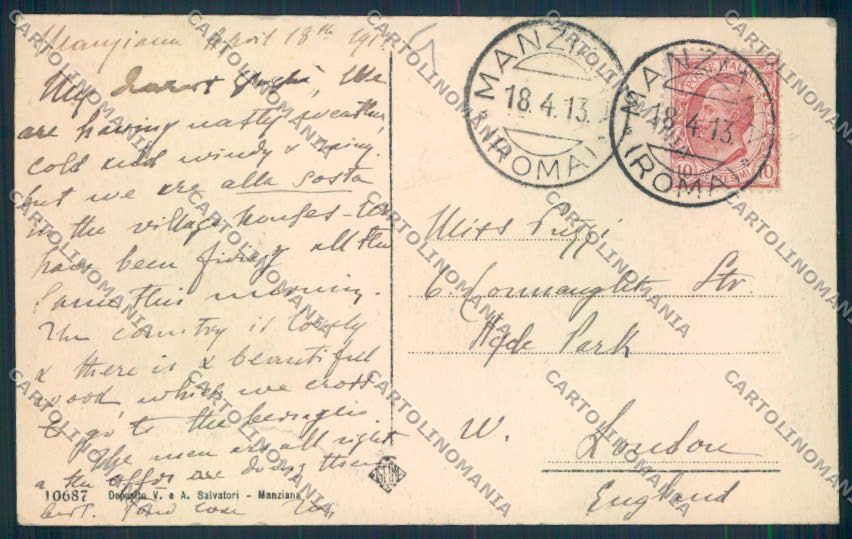 Manziana April 18th 191
My dearest We
are having nasty weather,
cold and windy & rainy
but we are alla sosta
in the village houses - We
have been firing all the
same this morning.
The country is lovely
& there is a beautiful
wood which we cross
to go to the bersaglio
The men are all right
& the are doing their
best. love
10687 Deposito V. e A. Salvatori - Manziana
MANZIANA
18.4.13
(ROMA)
MANZIANA
18.4.13
(ROMA)
POSTE ITALIANE
10 CENTESIMI 10
Miss
6. Connaught Str.
Hyde Park
W. London
England
CARTOLINOMANIA